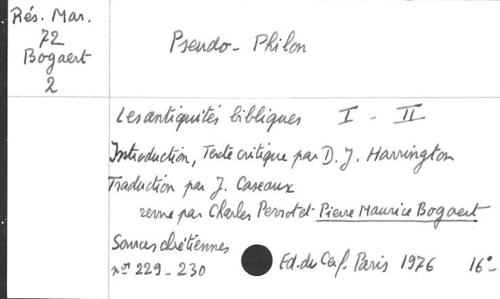 Rés. Mar.
72
Bogaert
2
Pseudo-Philon
Les antiquités bibliques I - II
Introduction, Texte critique par D. J. Harrington
Traduction par J. Caseaux
revue par Charles Perrot et Pierre Maurice Bogaert
Sources chrétiennes
nos 229-230
Ed. du Cerf. Paris 1976 16°